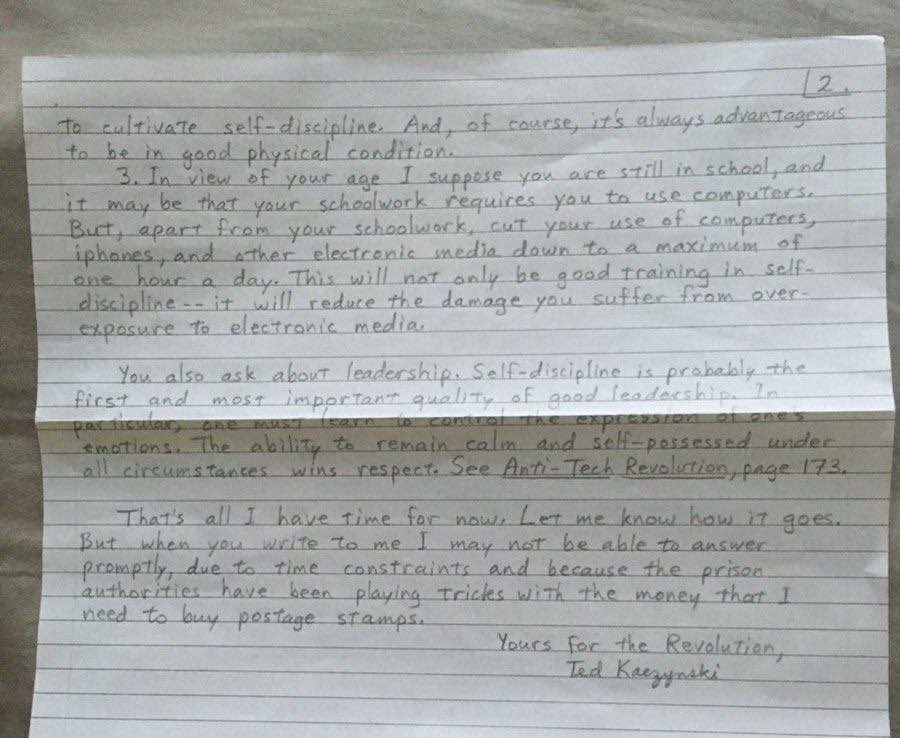 2.
to cultivate self-discipline. And, of course, it's always advantageous
to be in good physical condition.
3. In view of your age I suppose you are still in school, and
it may be that your schoolwork requires you to use computers.
But, apart from your schoolwork, cut your use of computers,
iphones, and other electronic media down to a maximum of
one hour a day. This will not only be good training in self-
discipline -- it will reduce the damage you suffer from over-
exposure to electronic media.
You also ask about leadership. Self-discipline is probably the
first and most important quality of good leadership. In
particular, one must learn to control the expression of one's
emotions. The ability to remain calm and self-possessed under
all circumstances wins respect. See Anti-Tech Revolution, page 173.
That's all I have time for now. Let me know how it goes.
But when you write to me I may not be able to answer
promptly, due to time constraints and because the prison
authorities have been playing tricks with the money that I
need to buy postage stamps.
Yours for the Revolution,
Ted Kaczynski